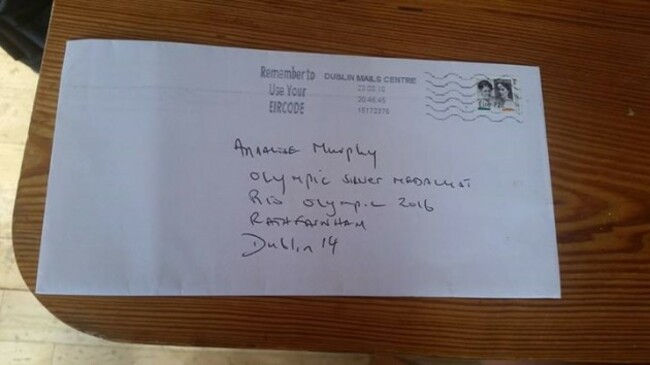 Remember to
Use Your
EIRCODE
DUBLIN MAILS CENTRE
20:46:45
15172376
Annalise Murphy
Olympic Silver Medalist
Rio Olympic 2016
Rathfarnham
Dublin 14